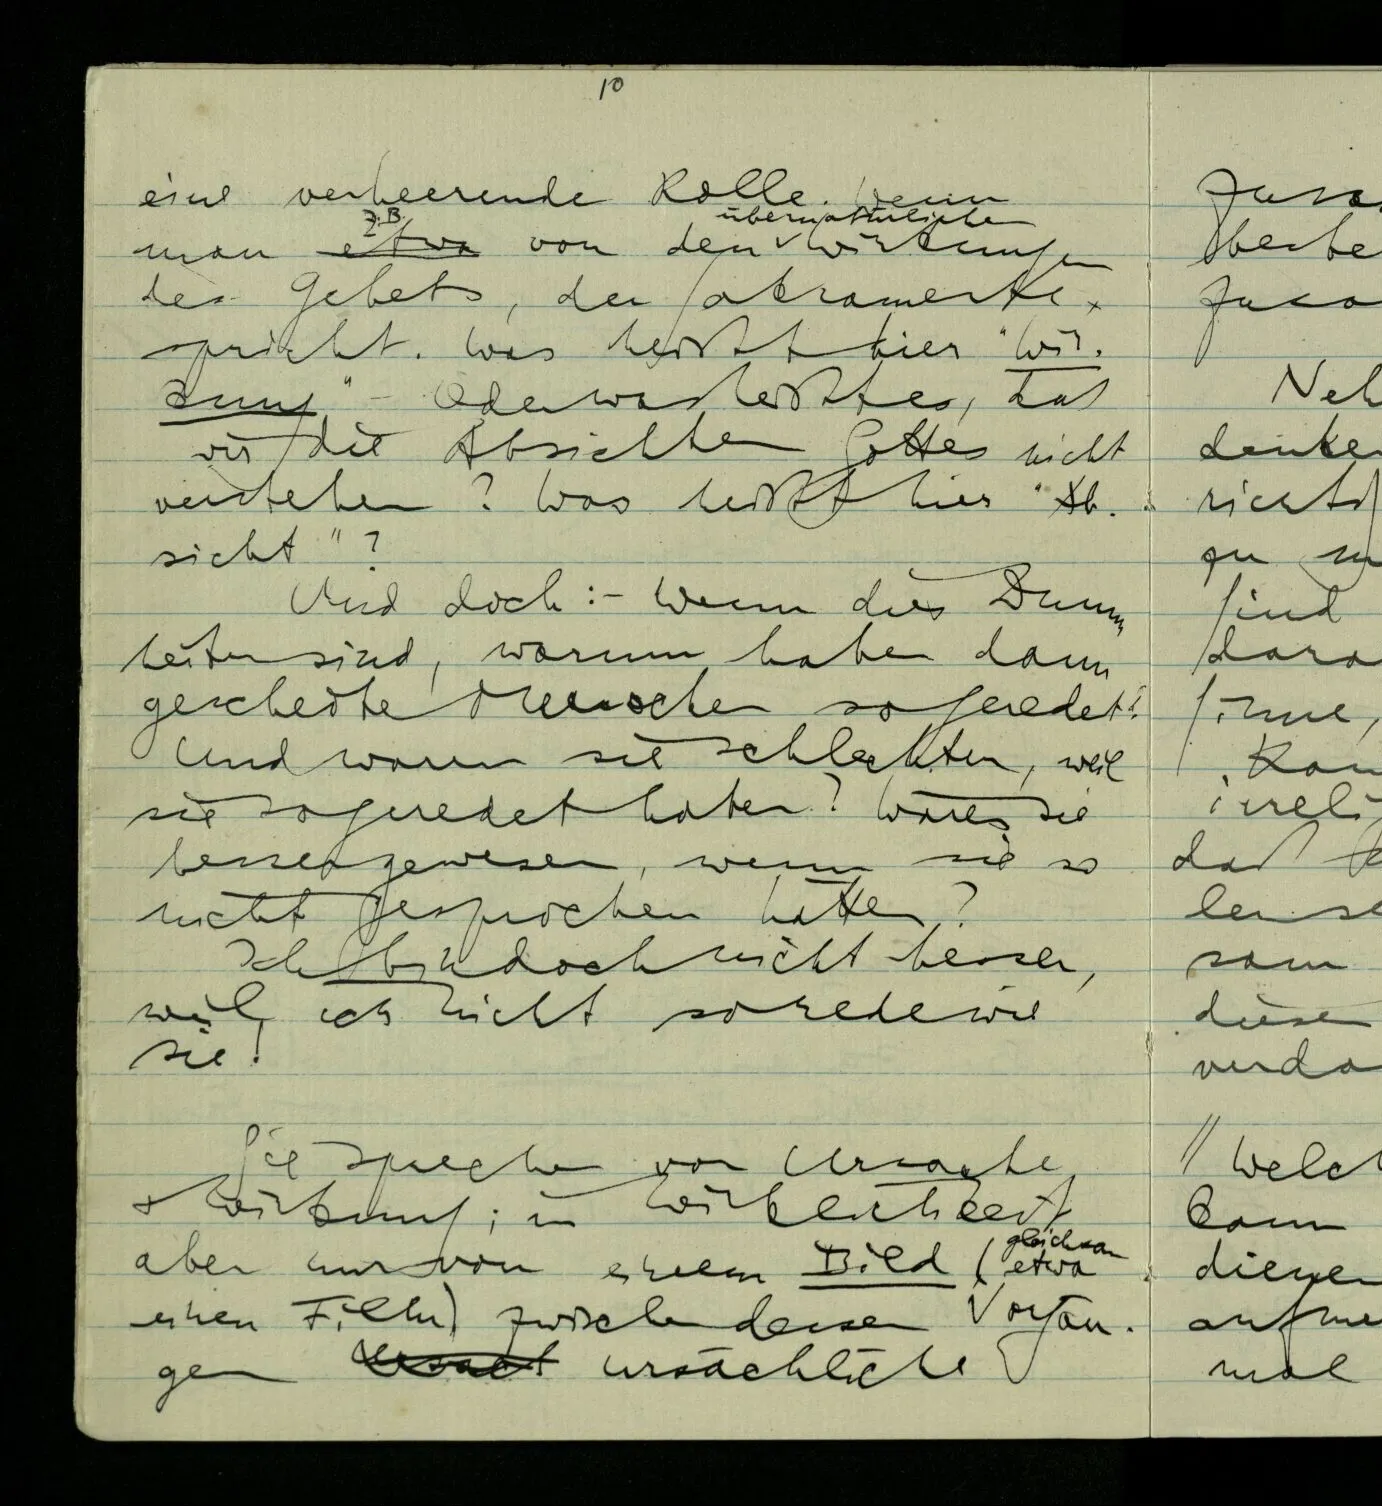 10
eine verheerende Rolle. Wenn
z.B. übernatürlichen
man etwa von den Wirkungen
des Gebets, der Sakramente,
spricht. Was heißt hier "Wir-
kung" - Oder was heißt es, daß
wir die Absichten Gottes nicht
verstehen? Was heißt hier "Ab-
sicht"?
Und doch:- Wenn dies Dumm
heiten sind, warum haben dann
gescheite Menschen so geredet?
Und waren sie schlechter, weil
sie so geredet haben? Wären sie
besser gewesen, wenn sie so
nicht gesprochen hätten?
Ich bin doch nicht besser,
weil ich nicht so rede wie
sie!
Sie sprechen von Ursache
& Wirkung; in Wirklichkeit
gleichsam
aber nur von einem Bild (etwa
einen Film) zwischen dessen Vorgän-
gen ursächliche
denken
zu
sind
Kann
dieser
mal